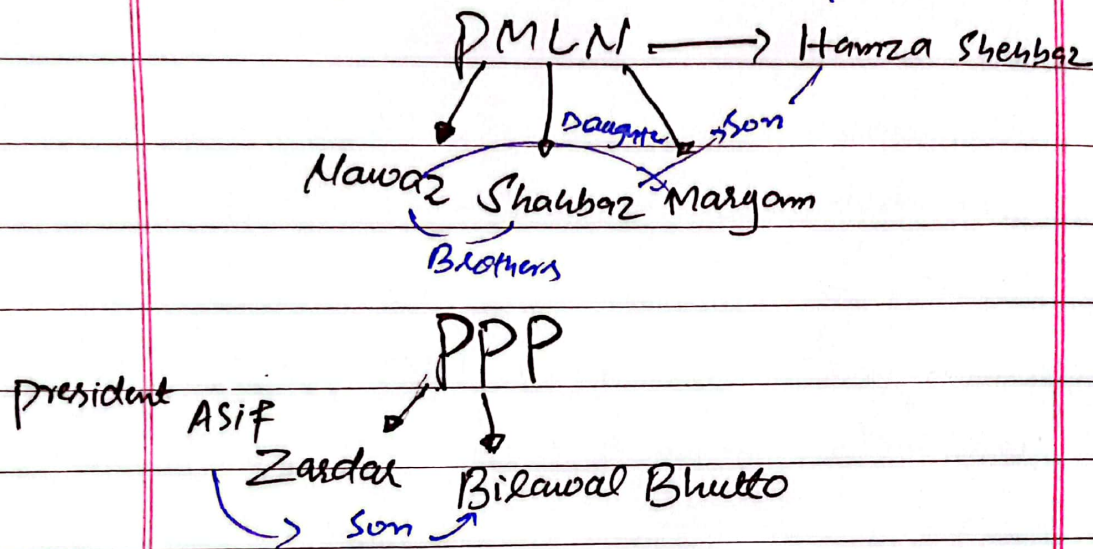 PMLN → Hamza Shehbaz
Daughter Son
Nawaz Shahbaz Maryam
Brothers
PPP
president Asif
Zardar Bilawal Bhutto
son